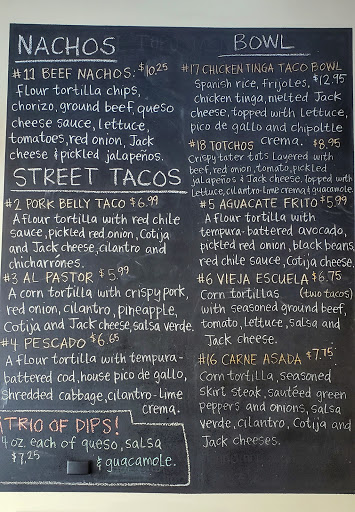 NACHOS
#11 BEEF NACHOS. $10.25
flour tortilla chips,
chorizo, ground beef queso
cheese sauce, lettuce,
tomatoes, red onion, Jack
cheese & pickled jalapeños.
STREET TACOS
#2 PORK BELLY TACO $6.99
A flour tortilla with red chile
sauce, pickled red onion, Cotija
and Jack cheese, cilantro and
chicharrónes.
#3 AL PASTOR $5.99
A corn tortilla with crispy pork,
red onion, cilantro, pineapple,
Cotija and Jack cheese, salsa verde.
#4 PESCADO $6.65
A flour tortilla with tempura-
battered cod, house pico de gallo,
shredded cabbage, cilantro-lime
crema.
¡TRIO OF DIPS!
4 oz. each of queso, salsa
$7.25 & guacamole.
BOWL
#17 CHICKEN TINGA TACO BOWL
Spanish rice, frijoles, $12.95
chicken tinga, melted Jack
cheese, topped with lettuce,
pico de gallo and chipoltle
crema.
#18 TOTCHOS $8.95
Crispy tater tots layered with
beef, red onion, tomato, pickled
jalapeños & Jack cheese, topped with
lettuce, cilantro-lime crema & guacamole.
#5 AGUACATE FRITO $5.99
A flour tortilla with
tempura-battered avocado,
pickled red onion, black beans,
red chile sauce, Cotija cheese.
#6 VIEJA ESCUELA $6.75
Corn tortillas (two tacos)
with seasoned ground beef,
tomato, lettuce, salsa and
Jack cheese.
#16 CARNE ASADA $7.75
Corn tortilla, seasoned
skirt steak, sautéed green
peppers and onions, salsa
verde, cilantro, Cotija and
Jack cheeses.